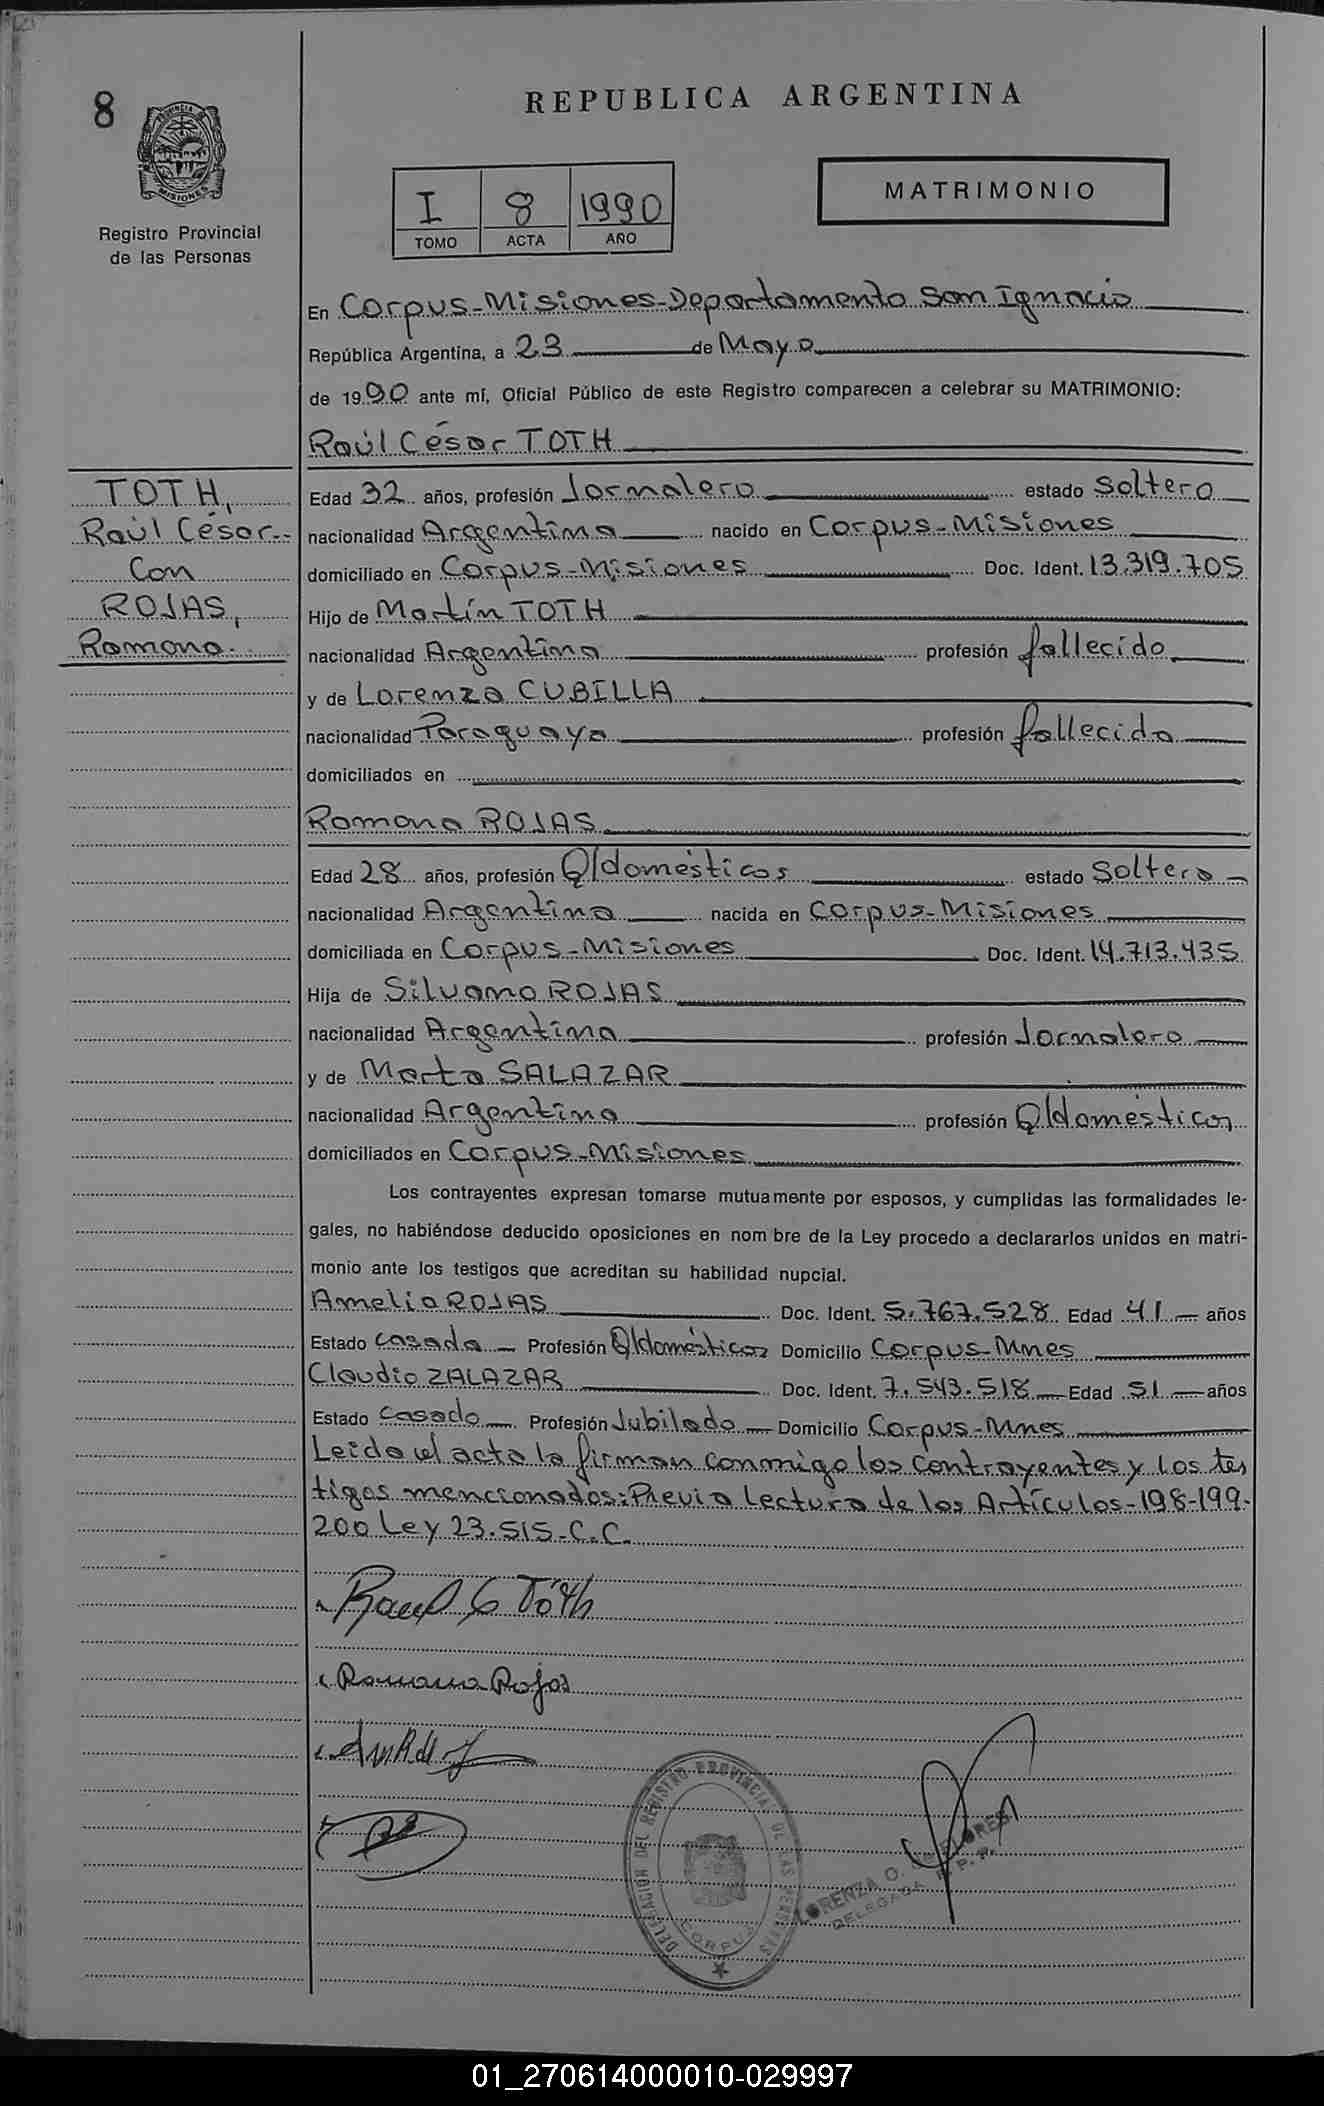 8
REPUBLICA ARGENTINA
MISIONES
Registro Provincial
de las Personas
I 8 1990
TOMO ACTA AÑO
MATRIMONIO
En Corpus-Misiones-Departamento San Ignacio
República Argentina, a 23 de Mayo
de 1990 ante mí, Oficial Público de este Registro comparecen a celebrar su MATRIMONIO:
Raúl César TOTH
TOTH,
Raúl César-
Con
ROJAS,
Ramona.
Edad 32 años, profesión Jornalero estado Soltero
nacionalidad Argentina nacido en Corpus-Misiones
domiciliado en Corpus-Misiones Doc. Ident. 13.319.705
Hijo de Martín TOTH
nacionalidad Argentina profesión fallecido
y de Lorenza CUBILLA
nacionalidad Paraguaya profesión fallecida
domiciliados en
Ramona ROJAS
Edad 28 años, profesión Q/domésticos estado Soltera
nacionalidad Argentina nacida en Corpus-Misiones
domiciliada en Corpus-Misiones Doc. Ident. 14.713.435
Hija de Silvano ROJAS
nacionalidad Argentina profesión Jornalero
y de Marta SALAZAR
nacionalidad Argentina profesión Q/domésticos
domiciliados en Corpus-Misiones
Los contrayentes expresan tomarse mutuamente por esposos, y cumplidas las formalidades le-
gales, no habiéndose deducido oposiciones en nom bre de la Ley procedo a declararlos unidos en matri-
monio ante los testigos que acreditan su habilidad nupcial.
Amelia ROJAS Doc. Ident. 5.767.528 Edad 41 años
Estado casada Profesión Q/domésticos Domicilio Corpus-Mnes
Claudio ZALAZAR Doc. Ident. 7.543.518 Edad 51 años
Estado casado Profesión Jubilado Domicilio Corpus-Mnes
Leida el acta la firman conmigo los contrayentes y los tes
tigos mencionados: Previa lectura de los Artículos-198-199-
200 Ley 23.515-C.C.
Raul C Tóth
Ramona Rojas
DELEGACION DEL REGISTRO PROVINCIAL DE LAS PERSONAS
CORPUS
LORENZA O. FLORES
DELEGADA R. P. P.
01_270614000010-029997